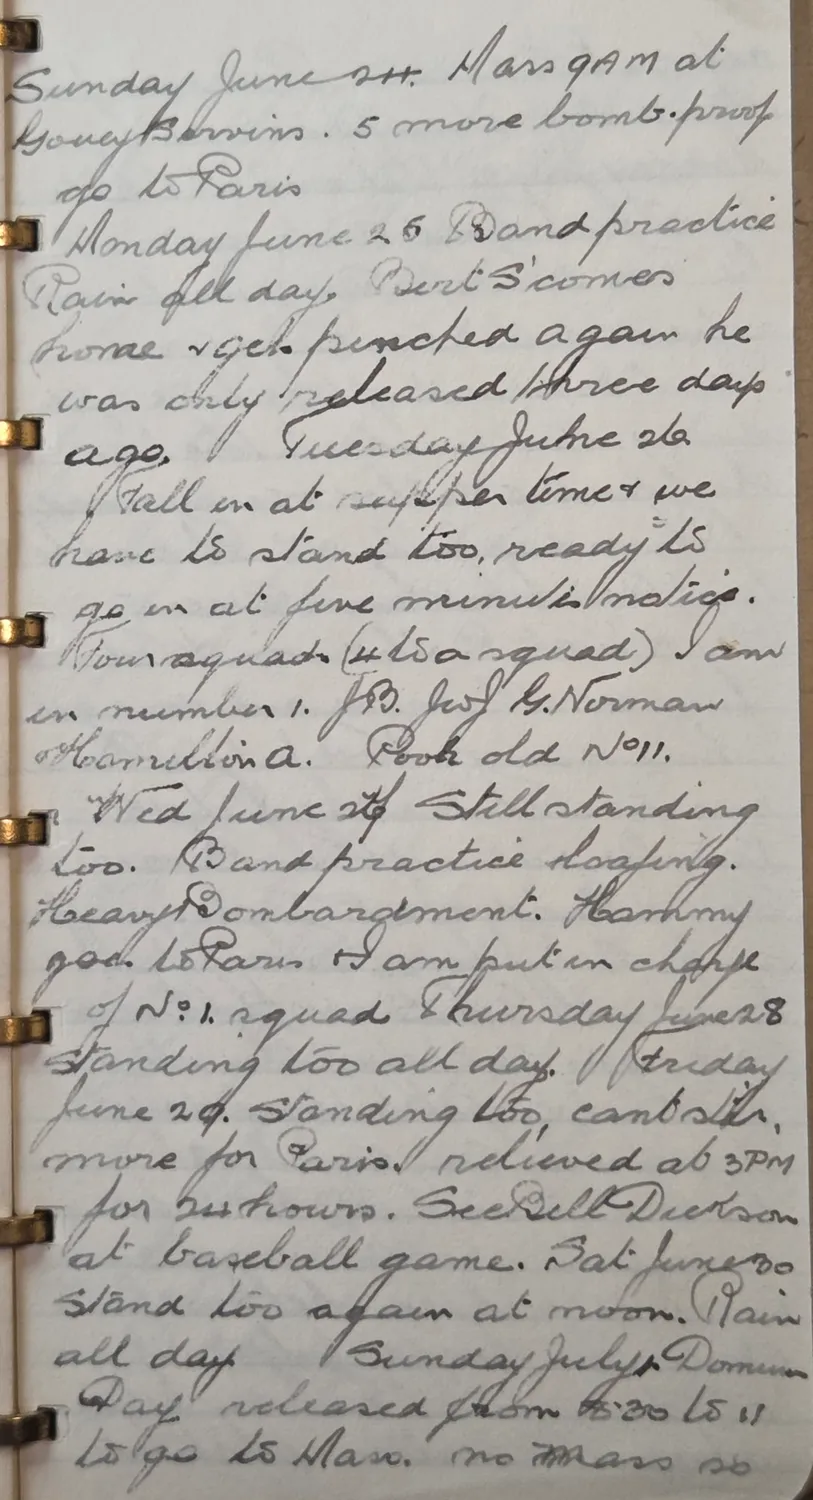 Sunday June 24. Mass 9AM at
Gouey Servins. 5 more bomb-proof
go to Paris
Monday June 25 Band practice
Rain all day. Bert S' comes
home & gets pinched again he
was only released three days
ago. Tuesday June 26
Fall in at supper time & we
have to stand too, ready to
go in at five minutes notice.
Four squads (4 to a squad) I am
in number 1. J.B. G. Norman
Hamilton A. Pooh old No 11.
Wed June 27 Still standing
too. Band practice & loafing.
Heavy Bombardment. Hammy
goes to Paris & I am put in charge
of No. 1. squad Thursday June 28
standing too all day. Friday
June 29. Standing too, cant stir,
more for Paris. relieved at 3PM
for 24 hours. See Bell Dickson
at baseball game. Sat June 30
stand too again at noon. Rain
all day Sunday July 1. Dominion
Day released from 8:30 to 11
to go to Mass. no mass so